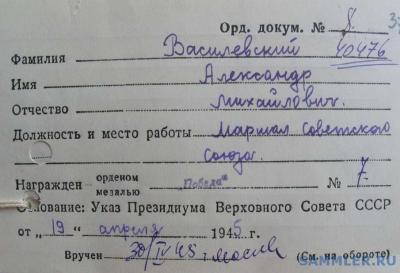 Орд. докум. № 8.
Фамилия Василевский 40476
Имя Александр
Отчество Михайлович.
Должность и место работы Маршал Советского
Союза.
Награжден орденом
медалью "Победа" № 7.
Основание: Указ Президиума Верховного Совета СССР
от „19" апреля 1945 г.
Вручен 30/IV 45 г. Москва (См. на обороте)
SAMMLER.RU